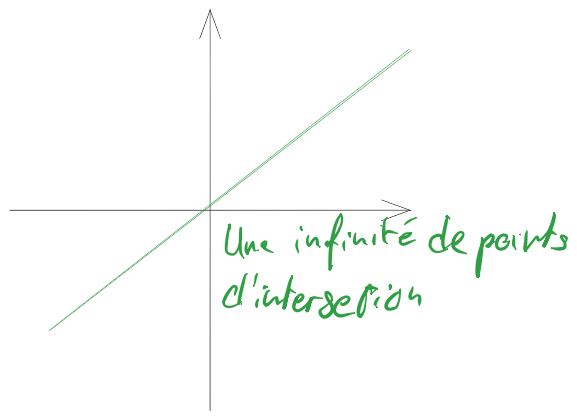 Une infinité de points
d'intersection